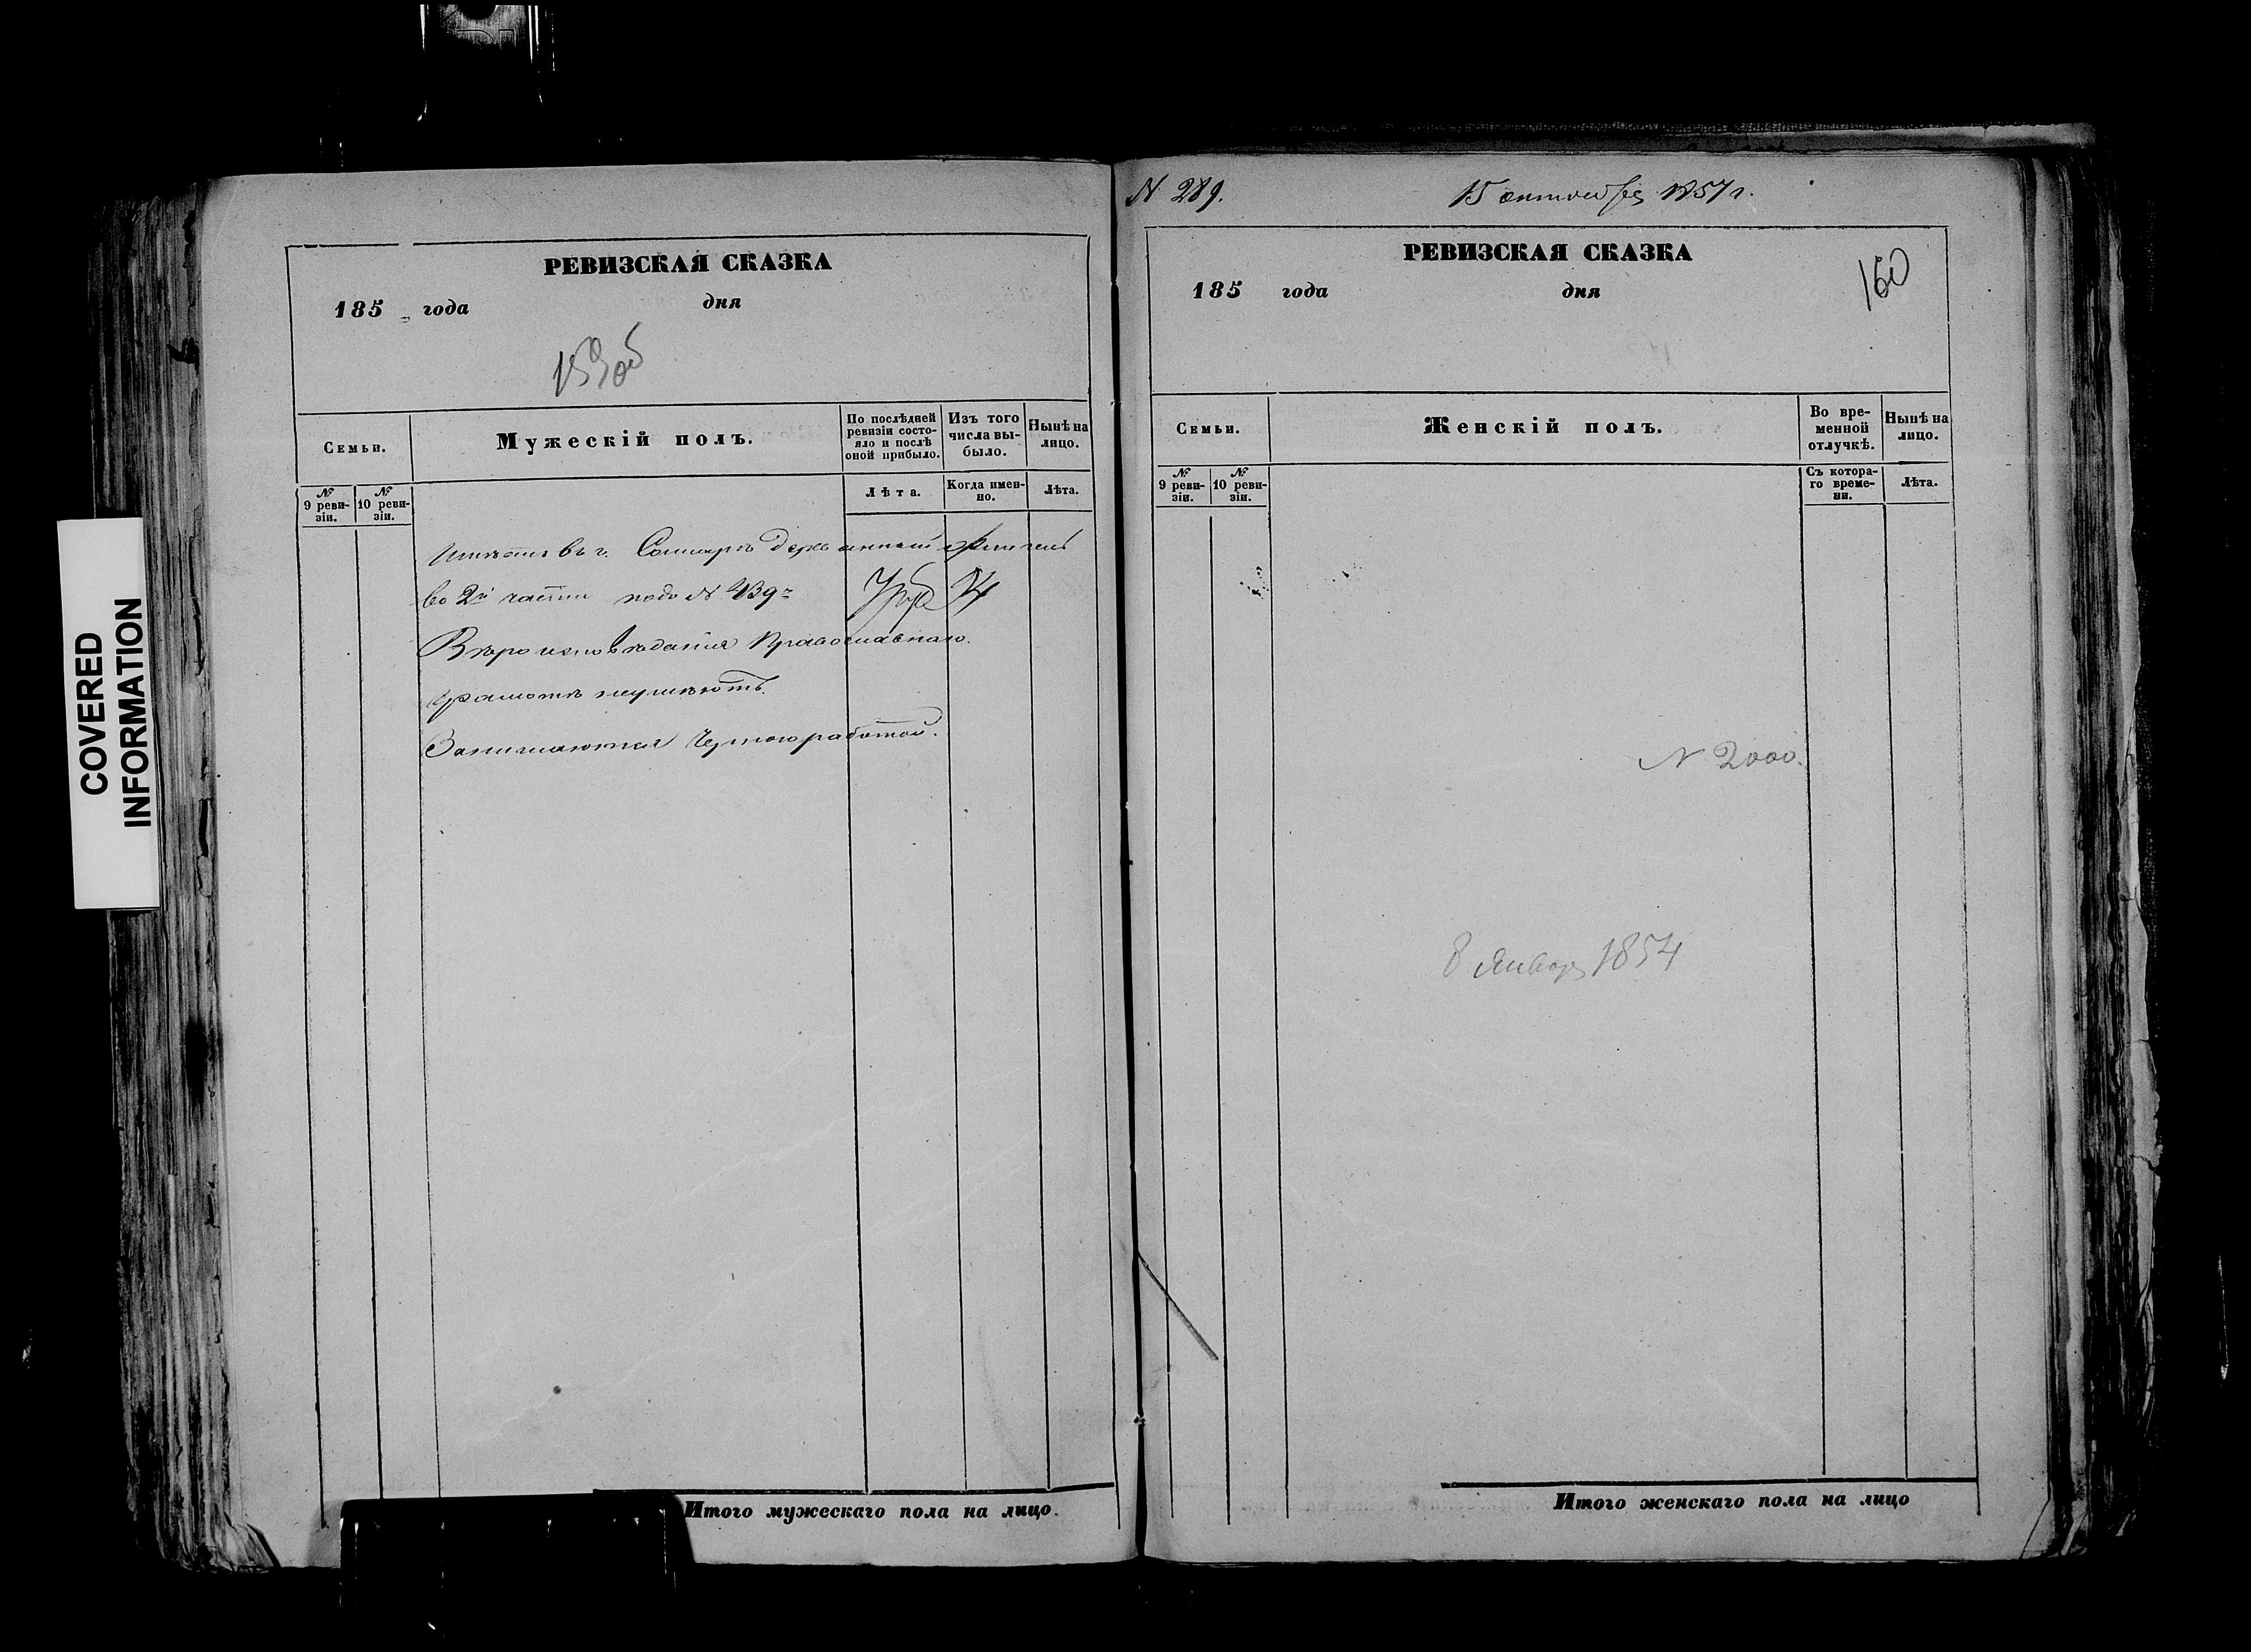 РЕВИЗСКАЯ СКАЗКА
185 года дня
159 об
Семьи.
Мужескій полъ.
По послѣдней ревизіи состояло и послѣ оной прибыло.
Изъ того числа выбыло.
Нынѣ на лицо.
№ 9 ревизіи.
№ 10 ревизіи.
Лѣта.
Когда именно.
Лѣта.
въ г. Самарѣ
во 2й части подъ № 439
Вѣроисповѣданія Православнаго.
Грамотѣ неумѣютъ.
Занимаются Черною работой.
Итого мужескаго пола на лицо.
N 289.
15 октября 1857 г.
РЕВИЗСКАЯ СКАЗКА
160
185 года дня
Семьи.
Женскій полъ.
Во временной отлучкѣ.
Нынѣ на лицо.
№ 9 ревизіи.
№ 10 ревизіи.
Съ котораго времени.
Лѣта.
N 2000.
8 Января 1854
Итого женскаго пола на лицо
COVERED
INFORMATION